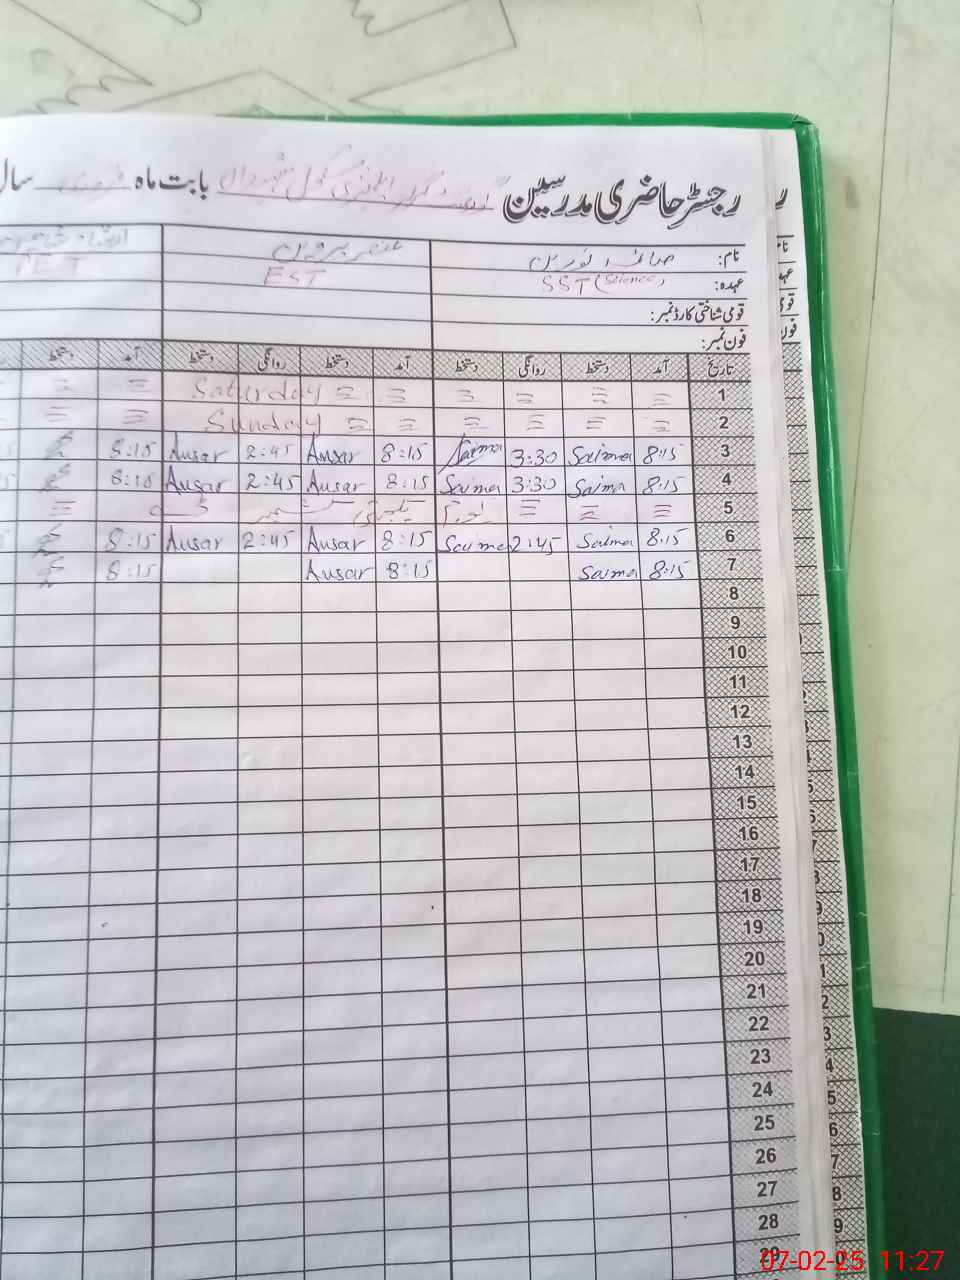 رجسٹر حاضری مدرسین گورنمنٹ گرلز ایلیمنٹری سکول بابت ماہ فروری سال
نام: صائمہ نورین عنصر پروین
عہدہ: SST (Science) EST PET
قومی شناختی کارڈ نمبر:
فون نمبر:
تاریخ آمد دستخط روانگی دستخط آمد دستخط روانگی دستخط آمد دستخط
1 = = = = = = Saturday = =
2 = = = = = = Sunday = =
3 8:15 Saima 3:30 Saima 8:15 Ansar 2:45 Ansar 8:15
4 8:15 Saima 3:30 Saima 8:15 Ansar 2:45 Ansar 8:15
5 = = = یوم یکجہتی کشمیر =
6 8:15 Saima 2:45 Saima 8:15 Ansar 2:45 Ansar 8:15
7 8:15 Saima 8:15 Ansar 8:15
8
9
10
11
12
13
14
15
16
17
18
19
20
21
22
23
24
25
26
27
28
29
07-02-25 11:27